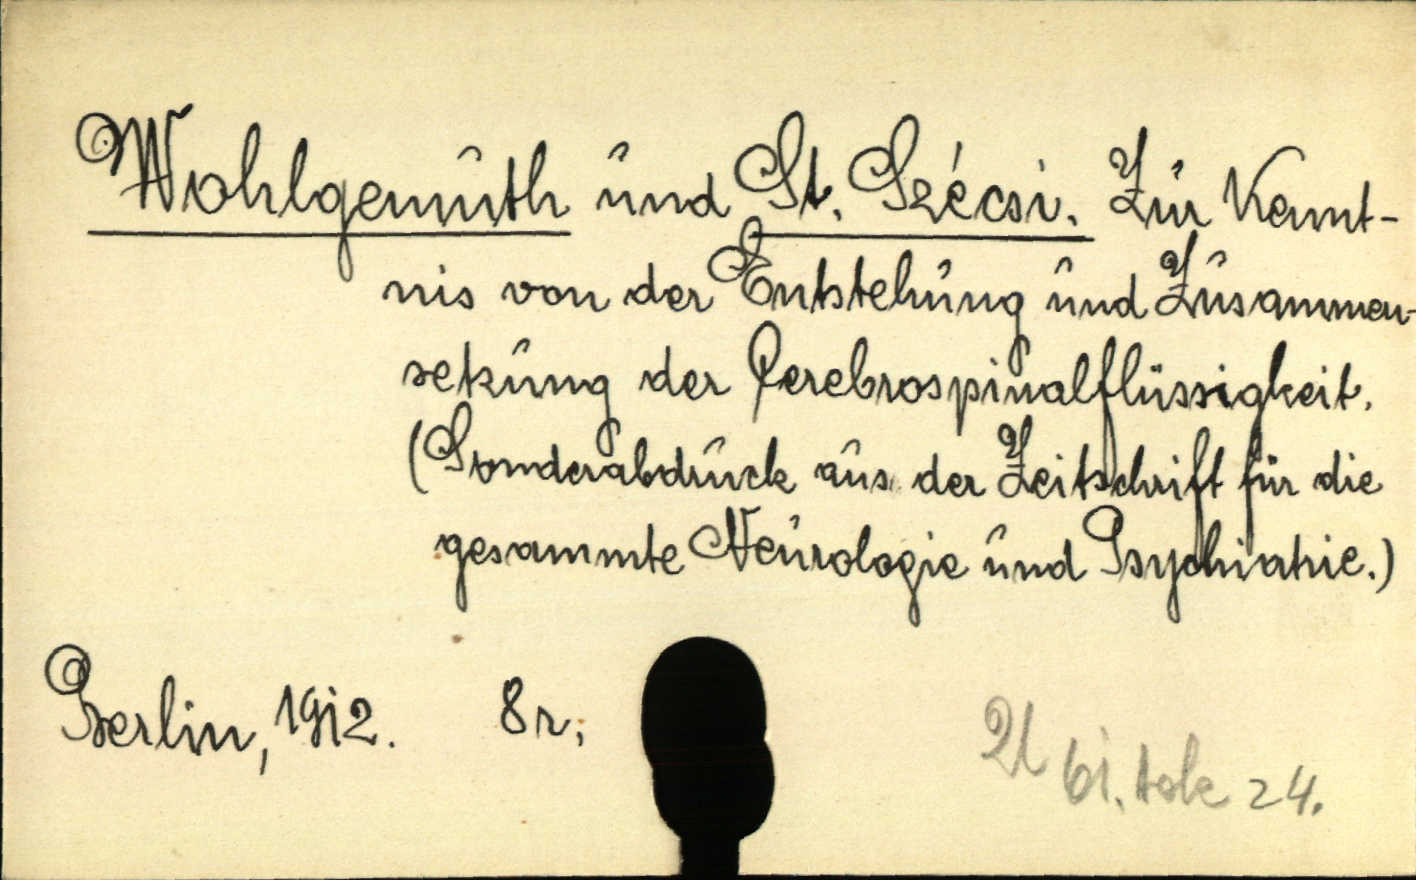 Wohlgemuth und St. Szécsi. Zur Kennt-
nis von der Entstehung und Zusammen-
setzung der Cerebrospinalflüssigkeit.
(Sonderabdruck aus der Zeitschrift für die
gesammte Neurologie und Psychiatrie.)
Berlin, 1912. 8r;
61. tok 24.